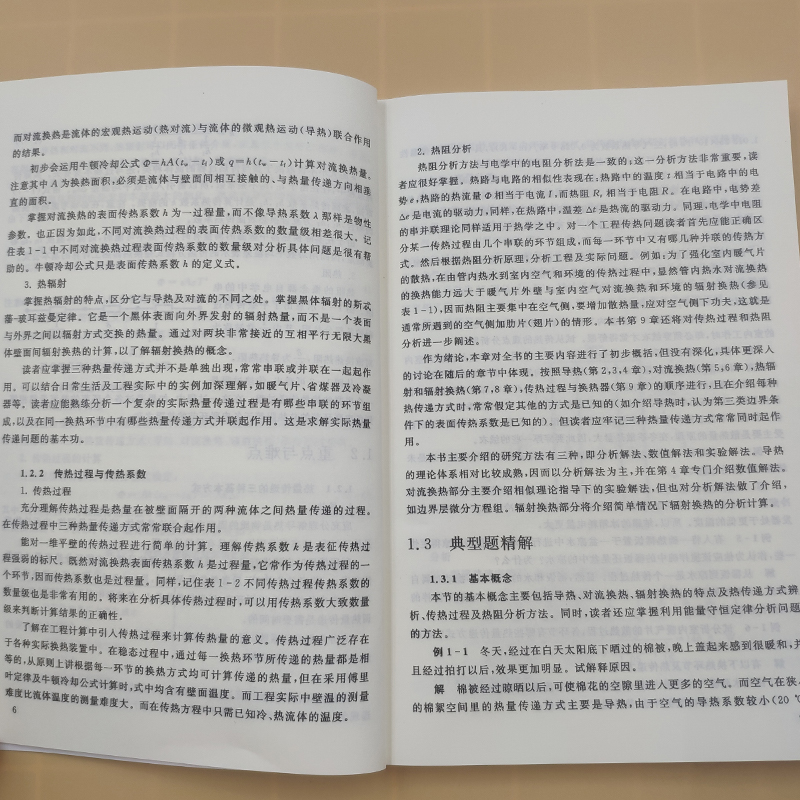 而对流换热是流体的宏观热运动(热对流)与流体的微观热运动(导热)联合作用
的结果。
初步会运用牛顿冷却公式 Φ=hA(tw-tf)或 q=h(tw-tf)计算对流换热量。
注意其中 A 为换热面积,必须是流体与壁面间相互接触的、与热量传递方向相垂
直的面积。
掌握对流换热的表面传热系数 h 为一过程量,而不像导热系数 λ 那样是物性
参数。也正因为如此,不同对流换热过程的表面传热系数的数量级相差很大。记
住表 1-1 中不同对流换热过程表面传热系数的数量级对分析具体问题是很有帮
助的。牛顿冷却公式只是表面传热系数 h 的定义式。
3. 热辐射
掌握热辐射的特点,区分它与导热及对流的不同之处。掌握黑体辐射的斯忒
藩-玻耳兹曼定律。它是一个黑体表面向外界发射的辐射热量,而不是一个表面
与外界之间以辐射方式交换的热量。通过对两块非常接近的互相平行无限大黑
体壁面间辐射换热的计算,以了解辐射换热的概念。
读者应掌握三种热量传递方式并不是单独出现,常常串联或并联在一起起作
用。可以结合日常生活及工程实际中的实例加深理解,如暖气片、省煤器及冷凝
器等。读者应能熟练分析一个复杂的实际热量传递过程是有哪些串联的环节组
成,以及在同一换热环节中有哪些热量传递方式并联起作用。这是求解实际热量
传递问题的基本功。
1.2.2 传热过程与传热系数
1. 传热过程
充分理解传热过程是热量在被壁面隔开的两种流体之间热量传递的过程。
在传热过程中三种热量传递方式常常联合起作用。
能对一维平壁的传热过程进行简单的计算。理解传热系数 k 是表征传热过
程强弱的标尺。既然对流换热表面传热系数 h 是过程量,它常作为传热过程的一
个环节,因而传热系数也是过程量。同样,记住表 1-2 不同传热过程传热系数的
数量级也是非常有用的。将来在分析具体传热过程时,可以用传热系数大致数量
级来判断计算结果的正确性。
了解在工程计算中引人传热过程来计算传热量的意义。传热过程广泛存在
于各种实际换热装置中。在稳态过程中,通过每一换热环节所传递的热量都是相
等的,从原则上讲根据每一环节的换热方式均可计算传递的热量,但在采用傅里
叶定律及牛顿冷却公式计算时,式中均含有壁面温度。而工程实际中壁温的测量
难度比流体温度的测量难度大。而在传热方程中只需已知冷、热流体的温度。
6
2. 热阻分析
热阻分析方法与电学中的电阻分析法是一致的;这一分析方法非常重要,读
者应很好掌握。热路与电路的相似性表现在:热路中的温度 t 相当于电路中的电
势 e,热路的热流量 Φ 相当于电流 I,而热阻 Rt 相当于电阻 R。在电路中,电势差
Δe 是电流的驱动力,同样,在热路中,温差 Δt 是热流的驱动力。同理,电学中电阻
的串并联理论同样适用于热学之中。对一个工程传热问题读者首先应能正确区
分某一传热过程由几个串联的环节组成,而每一环节中又有哪几种并联的传热方
式。然后根据热阻分析原理,分析工程及实际问题。例如:为了强化室内暖气片
的散热,在由管内热水到室内空气和环境的传热过程中,显然管内热水对流换热
的换热能力远大于暖气片外壁与室内空气对流换热和环境的辐射换热(参见
表 1-1),因而热阻主要集中在空气侧,要增加散热量,应对空气侧下功夫,这就是
通常所遇到的空气侧加肋片(翅片)的情形。本书第 9 章还将对传热过程和热阻
分析进一步阐述。
作为绪论,本章对全书的主要内容进行了初步概括,但没有深化,具体更深入
的讨论在随后的章节中体现。按照导热(第 2,3,4 章),对流换热(第 5,6 章),热辐
射和辐射换热(第 7,8 章),传热过程与换热器(第 9 章)的顺序进行,且在介绍每种
热传递方式时,常常假定其他的方式是已知的(如介绍导热时,认为第三类边界条
件下的表面传热系数是已知的)。但读者应牢记三种热量传递方式常常同时起作
用。
本书主要介绍的研究方法有三种,即分析解法、数值解法和实验解法。导热
的理论体系相对比较成熟,因而以分析解法为主,并在第 4 章专门介绍数值解法。
对流换热部分主要介绍相似理论指导下的实验解法,但也对分析解法做了介绍,
如边界层微分方程组。辐射换热部分将介绍简单情况下辐射换热的分析计算。
1.3 典型题精解
1.3.1 基本概念
本节的基本概念主要包括导热、对流换热、辐射换热的特点及热传递方式辨
析、传热过程及热阻分析方法。同时,读者还应掌握利用能量守恒定律分析问题
的方法。
例 1-1 冬天,经过在白天太阳底下晒过的棉被,晚上盖起来感到很暖和,并
且经过拍打以后,效果更加明显。试解释原因。
解 棉被经过晾晒以后,可使棉花的空隙里进人更多的空气。而空气在狭
的棉絮空间里的热量传递方式主要是导热,由于空气的导热系数较小(20 ℃